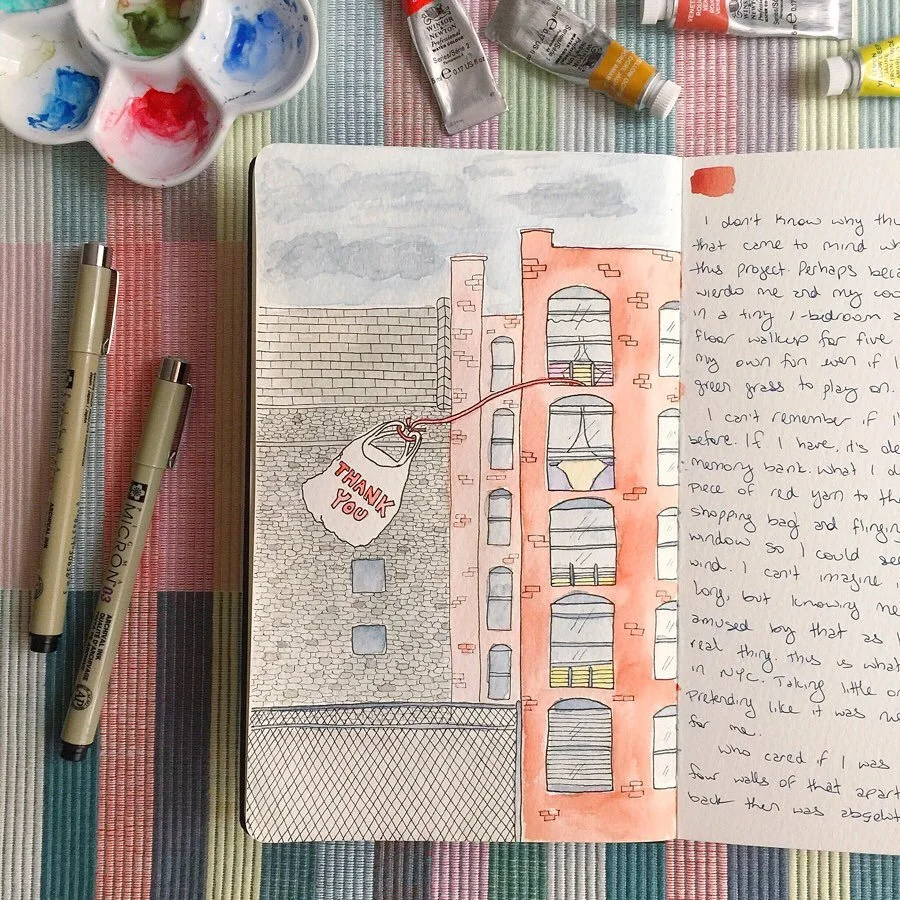 WINSOR
& NEWTON
Professional
WATER COLOUR
Series/Série 2
MICRON 03
ARCHIVAL INK
THANK
YOU
I don't know why thi
that came to mind wh
this project. Perhaps beca
wierdo me and my coo
in a tiny 1-bedroom a
floor walkup for five
my own fun even if I
green grass to play on.
I can't remember if I'
before. If I have, it's ole
memory bank. What I d
piece of red yarn to th
shopping bag and flingin
window so I could see
wind. I can't imagine i
long, but knowing me
amused by that as I
real thing. This is what
in NYC. Taking little or
pretending like it was ne
for me.
Who cared if I was
four walls of that apart
back then was absolut